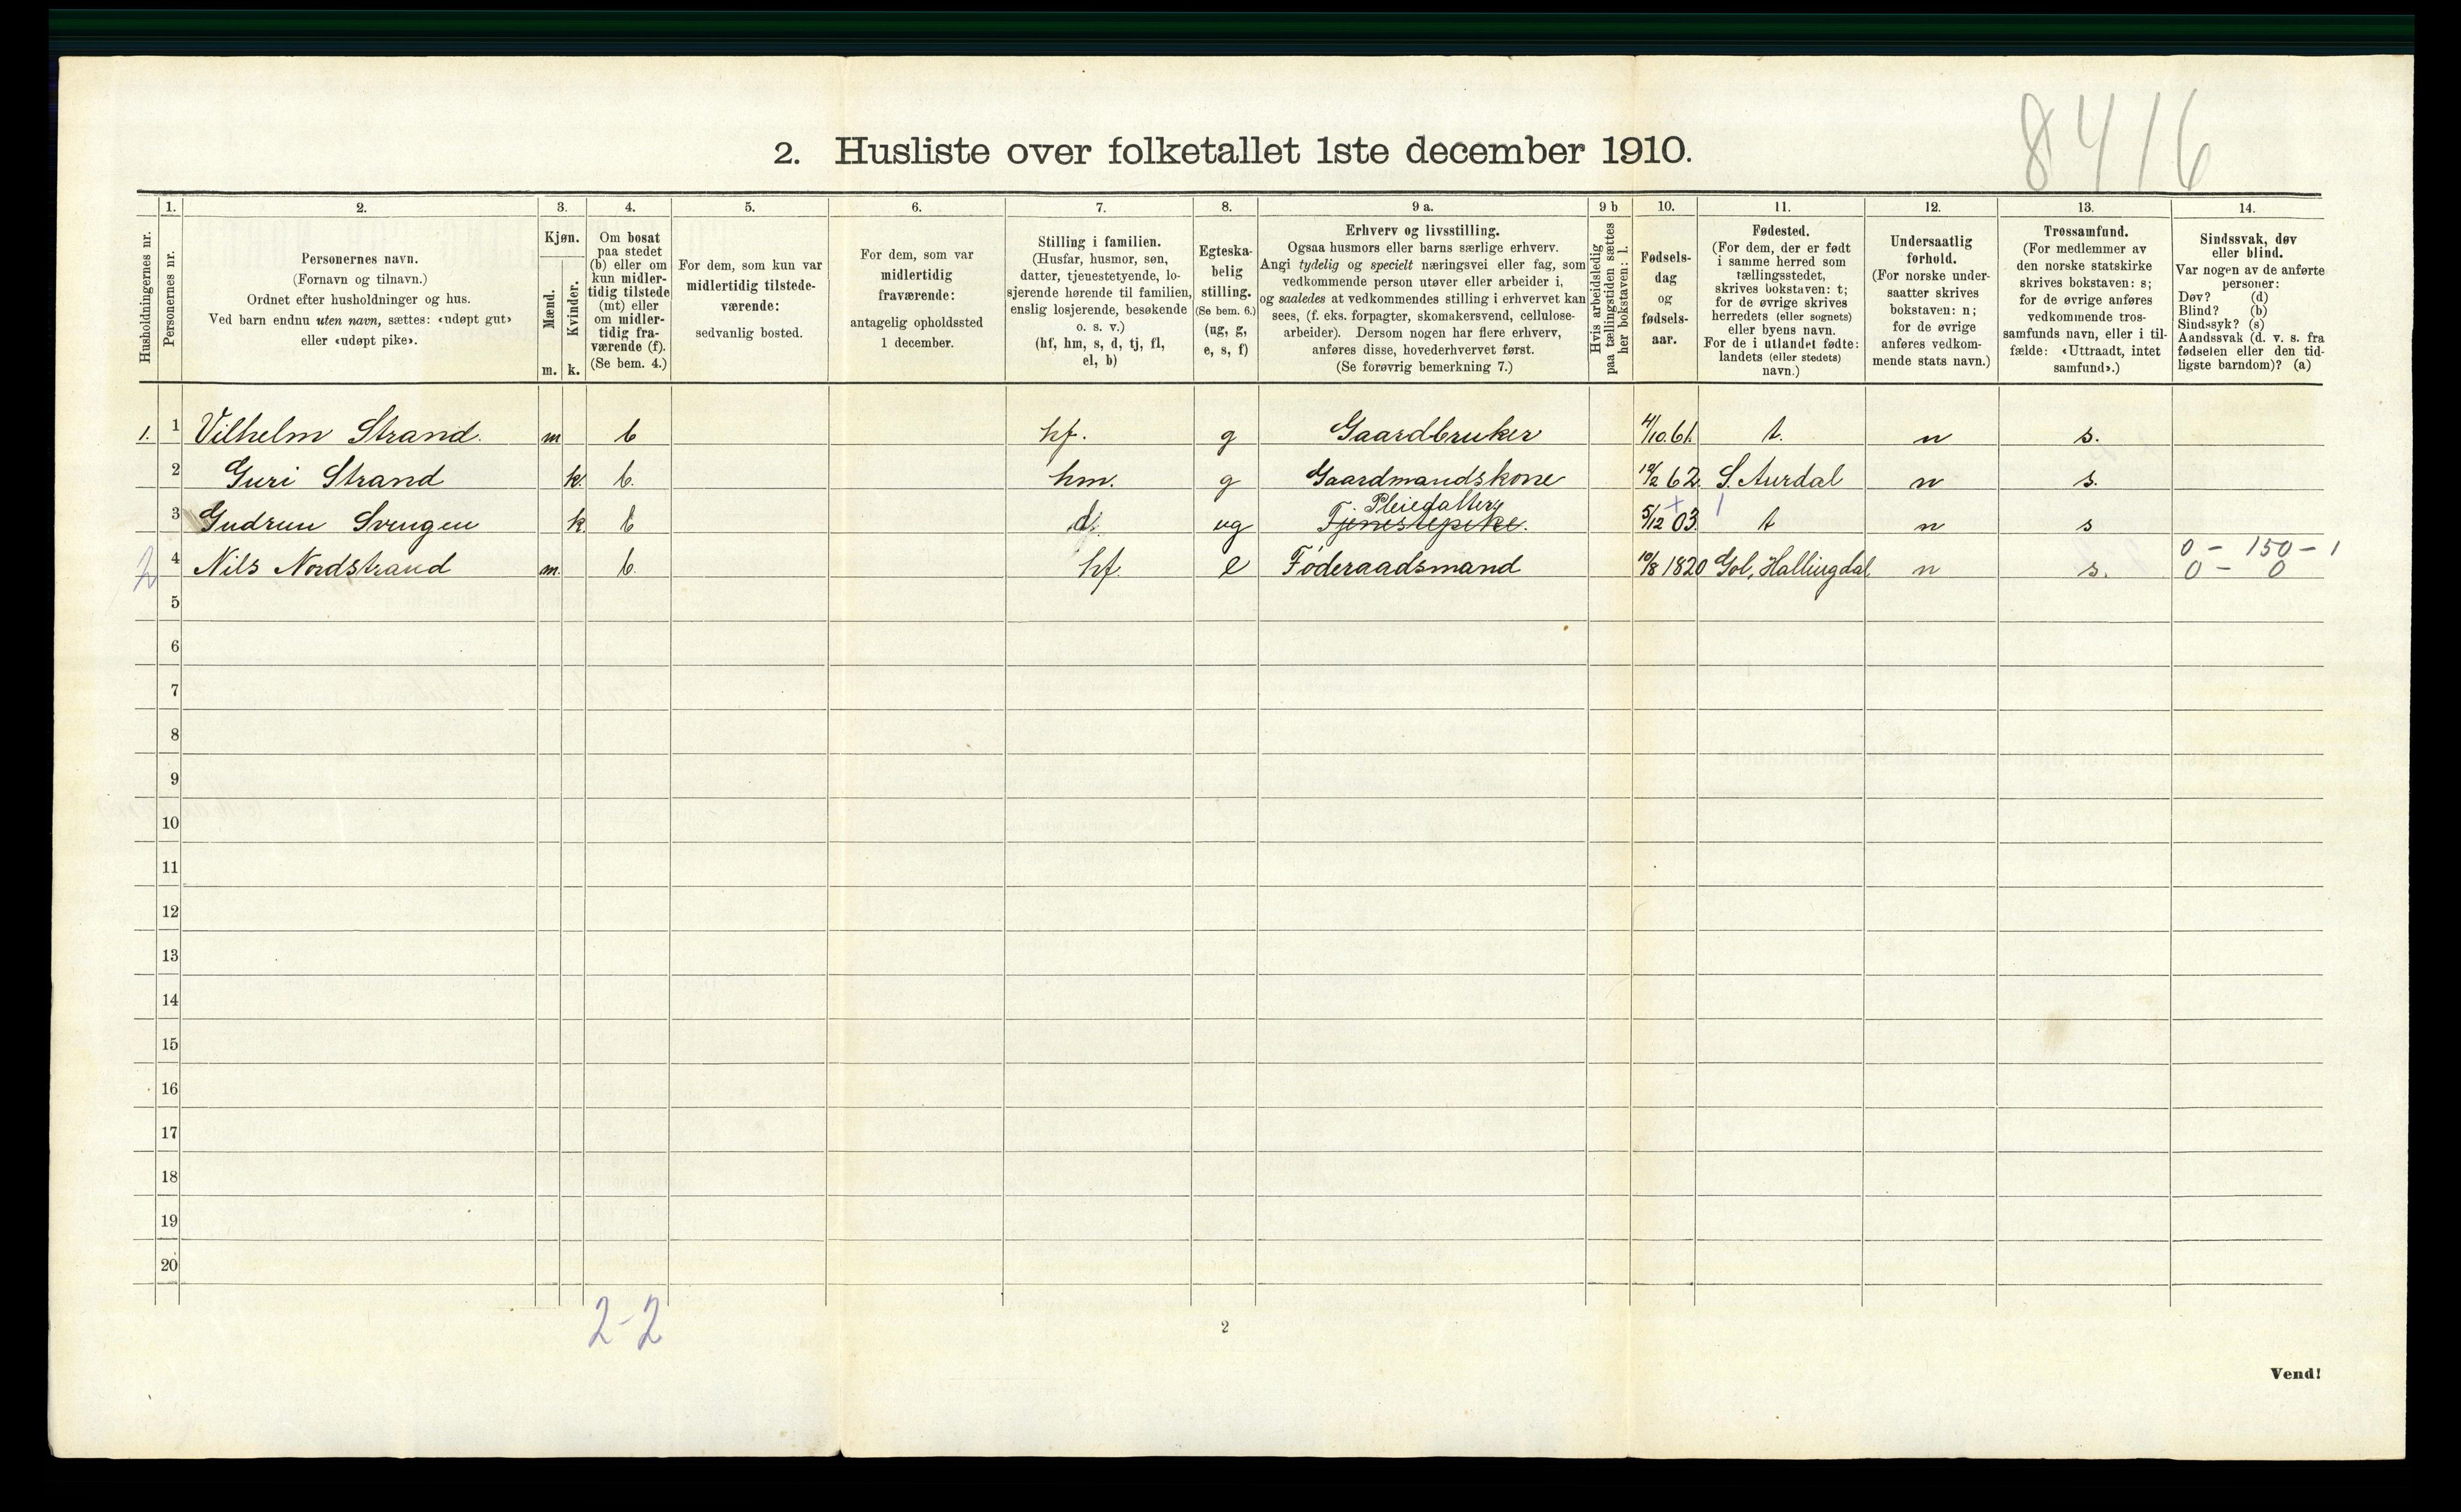 8416
2. Husliste over folketallet 1ste december 1910.
Husholdningernes nr.
1.
Personernes nr.
2.
Personernes navn.
(Fornavn og tilnavn.)
Ordnet efter husholdninger og hus.
Ved barn endnu uten navn, sættes: «udøpt gut»
eller «udøpt pike».
3.
Kjøn.
Mænd.
Kvinder.
m. k.
4.
Om bosat
paa stedet
(b) eller om
kun midler-
tidig tilstede
(mt) eller
om midler-
tidig fra-
værende (f).
(Se bem. 4.)
5.
For dem, som kun var
midlertidig tilstede-
værende:
sedvanlig bosted.
6.
For dem, som var
midlertidig
fraværende:
antagelig opholdssted
1 december.
7.
Stilling i familien.
(Husfar, husmor, søn,
datter, tjenestetyende, lo-
sjerende hørende til familien,
enslig losjerende, besøkende
o. s. v.)
(hf, hm, s, d, tj, fl,
el, b)
8.
Egteska-
belig
stilling.
(Se bem. 6.)
(ug, g,
e, s, f)
9 a.
Erhverv og livsstilling.
Ogsaa husmors eller barns særlige erhverv.
Angi tydelig og specielt næringsvei eller fag, som
vedkommende person utøver eller arbeider i,
og saaledes at vedkommendes stilling i erhvervet kan
sees, (f. eks. forpagter, skomakersvend, cellulose-
arbeider). Dersom nogen har flere erhverv,
anføres disse, hovederhvervet først.
(Se forøvrig bemerkning 7.)
9 b
Hvis arbeidsledig
paa tællingstiden sættes
her bokstaven: l.
10.
Fødsels-
dag
og
fødsels-
aar.
11.
Fødested.
(For dem, der er født
i samme herred som
tællingsstedet,
skrives bokstaven: t;
for de øvrige skrives
herredets (eller sognets)
eller byens navn.
For de i utlandet fødte:
landets (eller stedets)
navn.)
12.
Undersaatlig
forhold.
(For norske under-
saatter skrives
bokstaven: n;
for de øvrige
anføres vedkom-
mende stats navn.)
13.
Trossamfund.
(For medlemmer av
den norske statskirke
skrives bokstaven: s;
for de øvrige anføres
vedkommende tros-
samfunds navn, eller i til-
fælde: «Uttraadt, intet
samfund».)
14.
Sindssvak, døv
eller blind.
Var nogen av de anførte
personer:
Døv? (d)
Blind? (b)
Sindssyk? (s)
Aandssvak (d. v. s. fra
fødselen eller den tid-
ligste barndom)? (a)
1. 1 Vilhelm Strand. m b hf. g Gaardbruker 4/10.61. t. n s.
2 Guri Strand k. b. hm. g Gaardmandskone 62. S. Aurdal n s.
Pleiedatter
3 Gudrun Svengen k. b d. ug Tjenestepike. 5/12 03. t n s
0 - 150 - 1
2 4 Nils Nordstrand m. b. hf. e Føderaadsmand 10/8 1820 Gol, Hallingdal n s. 0 - 0
5
6
7
8
9
10
11
12
13
14
15
16
17
18
19
20
2-2
2
Vend!